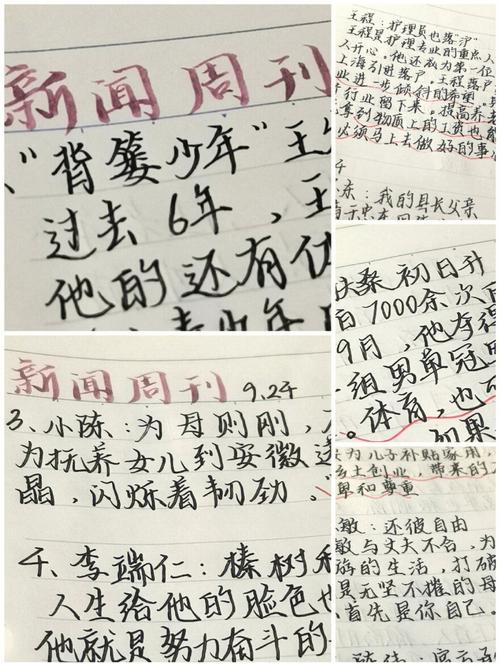 新闻周刊
“背篓少年”王
过去6年，王
他的还有优
新闻周刊
9.24
3、小陈：为母则刚，
为抚养女儿到安徽
晶，闪烁着韧劲。”
4、李端仁：榛树和
人生给他的脸色也
他就是努力奋斗的
王程：护理员也落沪
王程是护理专业的重点人
人开心。他还成为第一位
上海引进落户。王程落户
业进一步倾斜的希望
行业留下来。提高养老
拿到物质上的工资也
必须马上去做好的事
东：我的县长父亲
扶桑初日升
百7000余次
9月，他夺得
组男单冠
。体育，也
如果
为儿子补贴家用，
乡土创业，带来的
和尊重
敏：还彼自由
敏与丈夫不合，为
的生活，打破
是无坚不摧的母
首先是你自己。